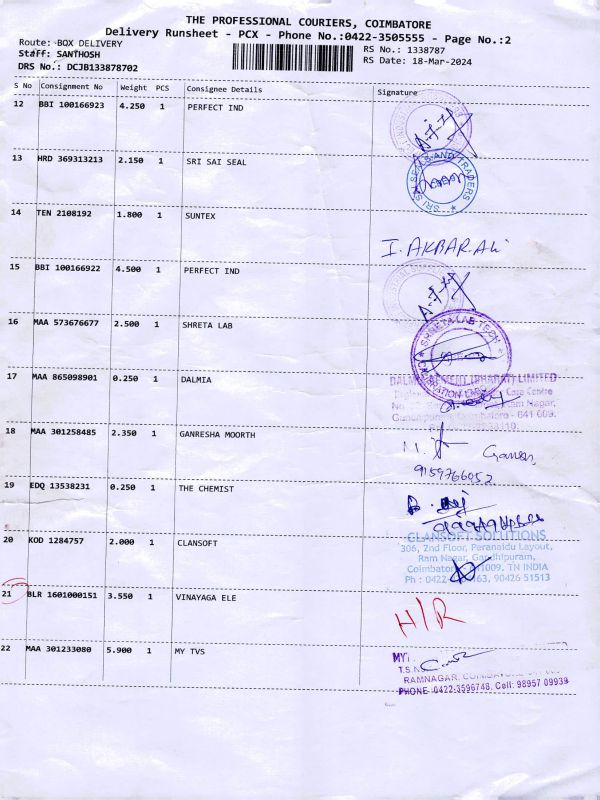 THE PROFESSIONAL COURIERS, COIMBATORE
Delivery Runsheet - PCX - Phone No.:0422-3505555 - Page No.:2
Route: BOX DELIVERY
Staff: SANTHOSH
DRS No.: DCJB133878702
RS No.: 1338787
RS Date: 18-Mar-2024
S No Consignment No Weight PCS Consignee Details Signature
12 BBI 100166923 4.250 1 PERFECT IND
13 HRD 369313213 2.150 1 SRI SAI SEAL
SRI SAI SEALS AND TRADERS
14 TEN 2108192 1.800 1 SUNTEX
I. AKBAR.Ali
15 BBI 100166922 4.500 1 PERFECT IND
16 MAA 573676677 2.500 1 SHRETA LAB
SHRETA LAB TECH
CALIBRATION LABS
17 MAA 865098901 0.250 1 DALMIA
DALMIA CEMENT (BHARAT) LIMITED
Care Centre
No Ram Nagar,
Coimbatore - 641 009.
18 MAA 301258485 2.350 1 GANRESHA MOORTH
Ganesh
9159766052
19 EDQ 13538231 0.250 1 THE CHEMIST
20 KOD 1284757 2.000 1 CLANSOFT
CLANSOFT SOLUTIONS
306, 2nd Floor, Peranaidu Layout,
Ram Nagar, Gandhipuram,
Coimbatore 009. TN INDIA
Ph : 0422 63, 90426 51513
21 BLR 1601000151 3.550 1 VINAYAGA ELE
H/R
22 MAA 301233080 5.900 1 MY TVS
MY
T.S.N
RAMNAGAR, COIMBATORE
PHONE :0422-3596748, Cell: 98957 09939